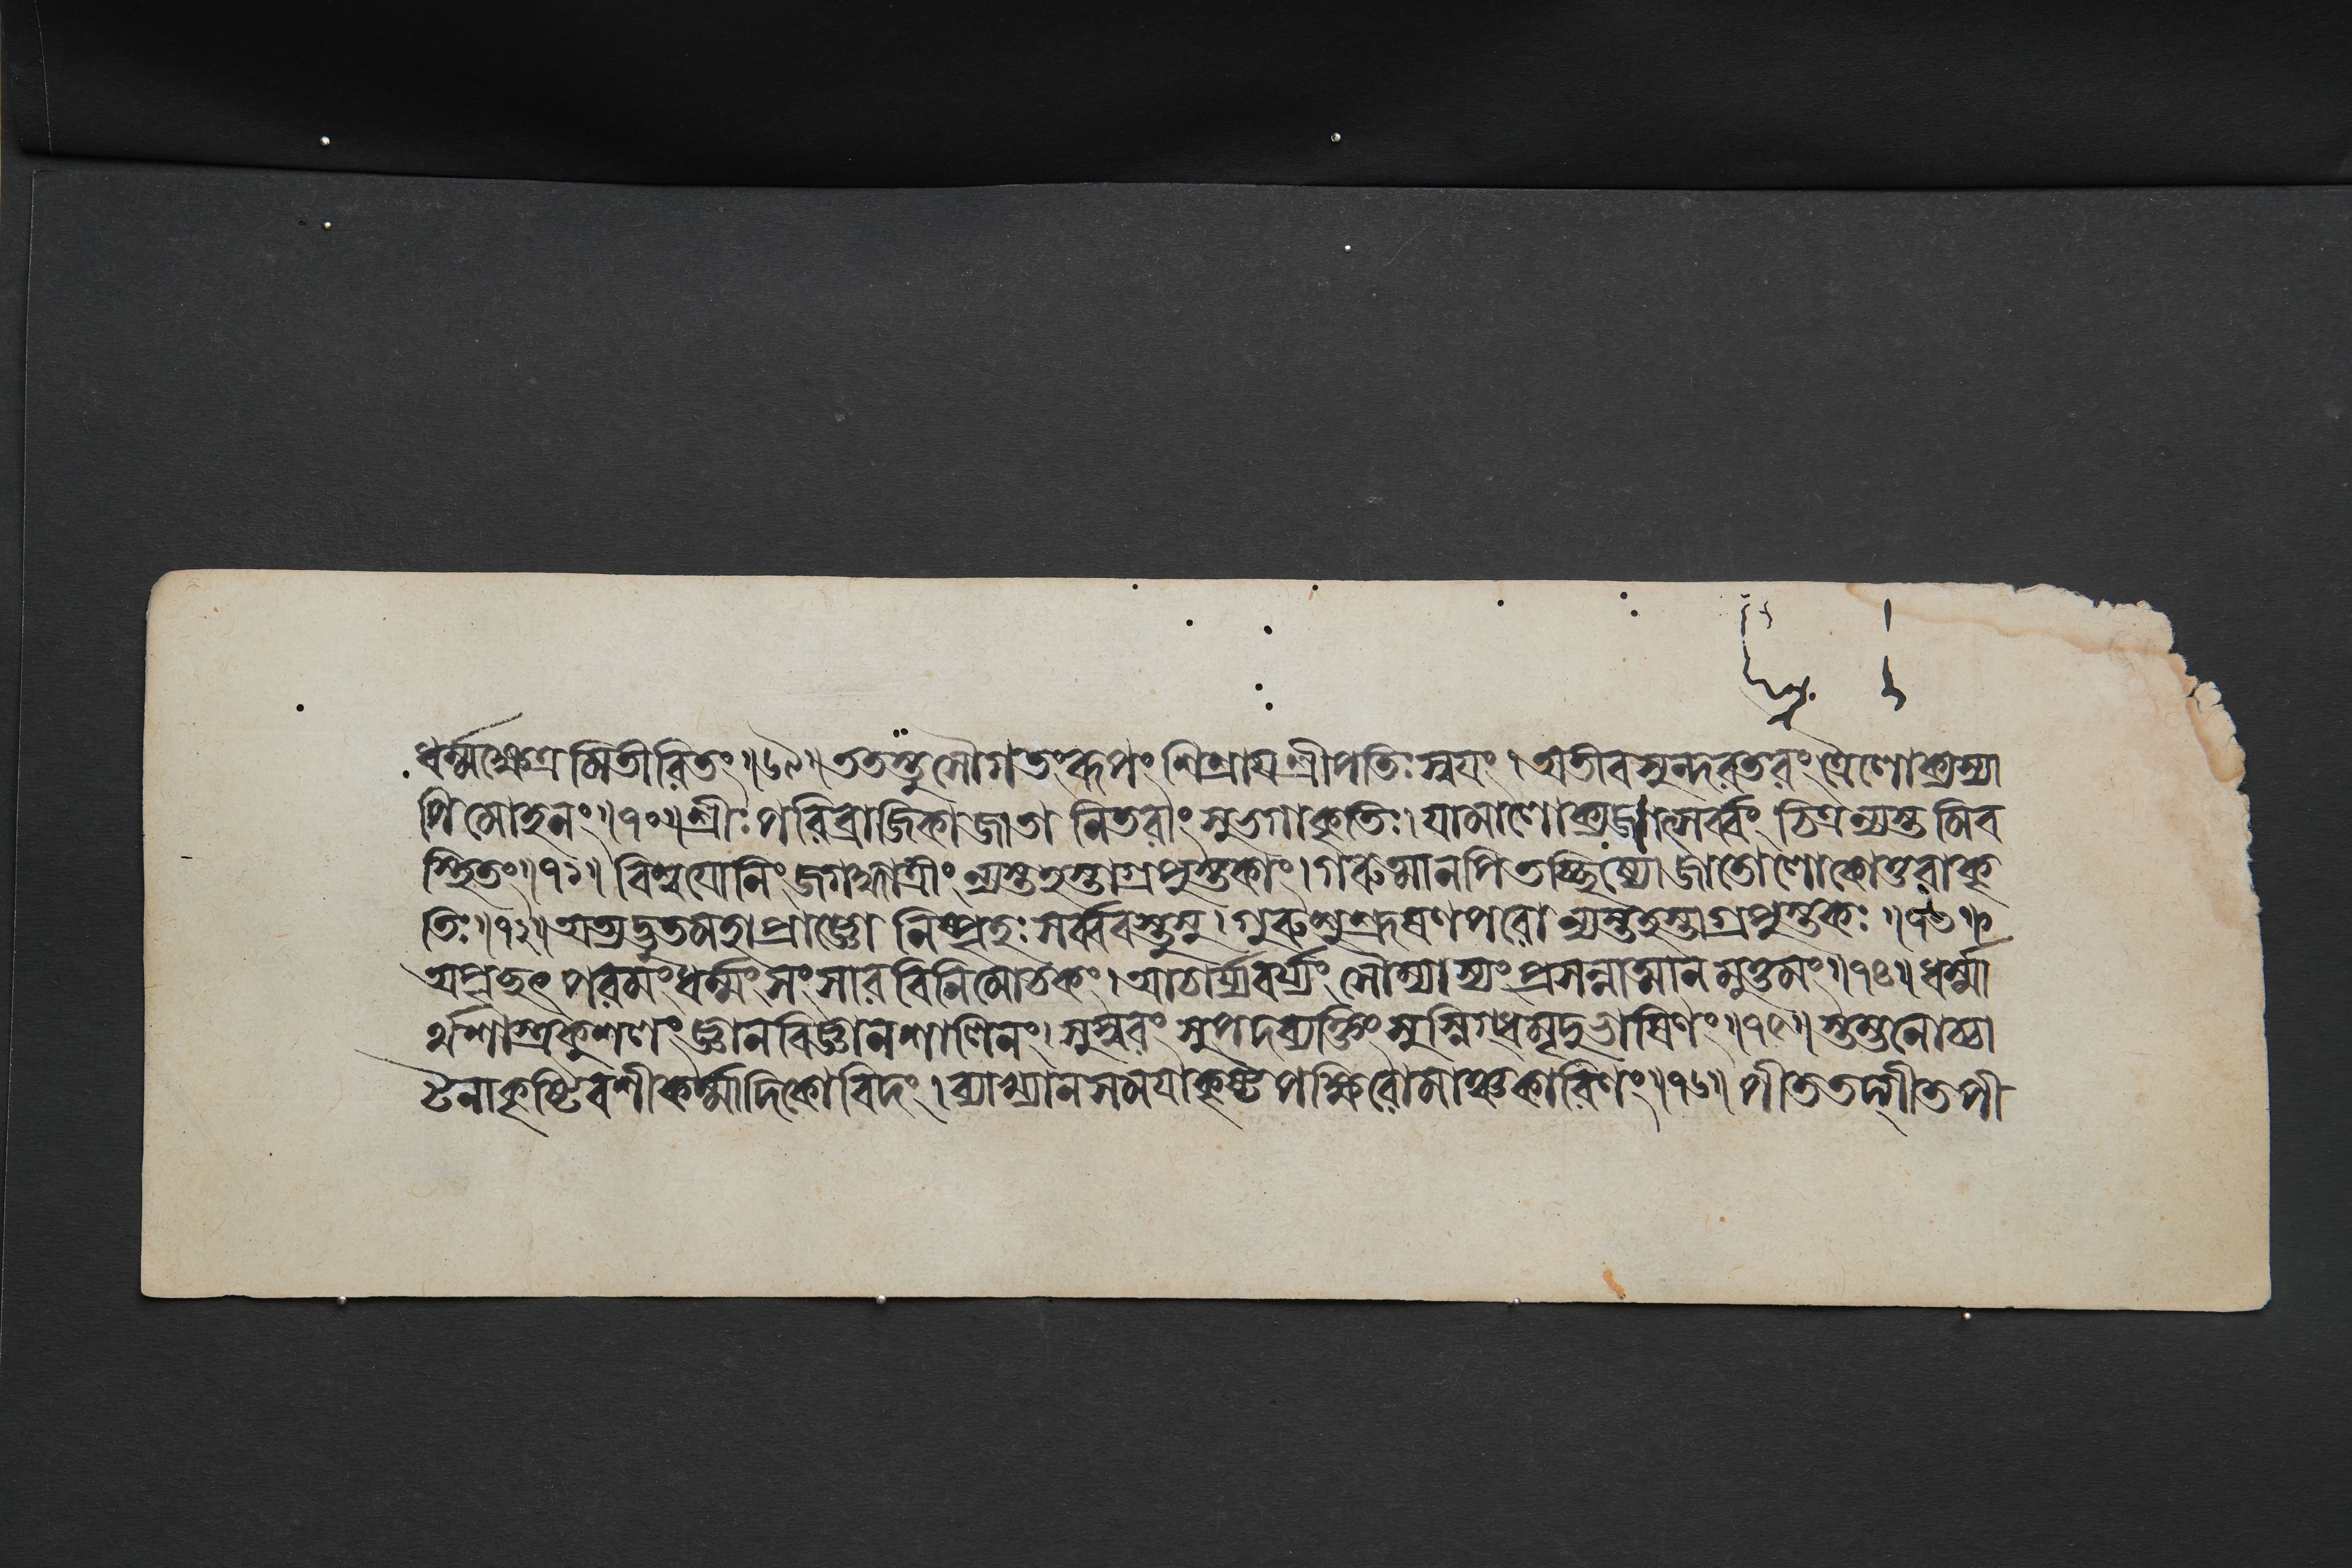 ধর্ম্মক্ষেত্রমিতীরিতং॥৬৯॥ততস্তু সৌগতং রূপং শিশ্রায শ্রীপতিঃ স্বযং। অতীব সুন্দরতরং ত্রৈলোক্যস্যা
পি মোহনং॥৭০॥শ্রীঃ পরিব্রাজিকা জাতা নিতরাং সুভগাকৃতিঃ। যামালোক্য জগৎসর্ব্বং চিত্রন্যস্তমিব
স্থিতং॥৭১॥ বিশ্বযোনিং জগদ্ধাত্রীং ন্যস্তহস্তাগ্রপুস্তকাং। গরুত্মানপি তচ্ছিষ্যো জাতো লোকোত্তরাকৃ
তিঃ॥৭২॥ অত্যদ্ভুতমহাপ্রাজ্ঞো নিষ্পৃহঃ সর্ব্ববস্তুষু। গুরুশুশ্রূষণপরো ন্যস্তহস্তাগ্রপুস্তকঃ॥৭৩॥
অপৃচ্ছৎ পরমং ধর্ম্মং সংসারবিনিমোচকং। আচার্য্যবর্য্যং সৌম্যাস্যং প্রসন্নাত্মানমুত্তমং॥৭৪॥ ধর্ম্মা
র্থশাস্ত্রকুশলং জ্ঞানবিজ্ঞানশালিনং। সুস্বরং সুপদব্যক্তিং সুস্নিগ্ধমৃদুভাষিণং॥৭৫॥ স্তম্ভনোচ্চা
টনাকৃষ্টিবশীকর্ম্মাদিকোবিদং। ব্যাখ্যানসমযাকৃষ্টপক্ষিরোমাঞ্চকারিণং॥৭৬॥ পীততদ্গীতপী